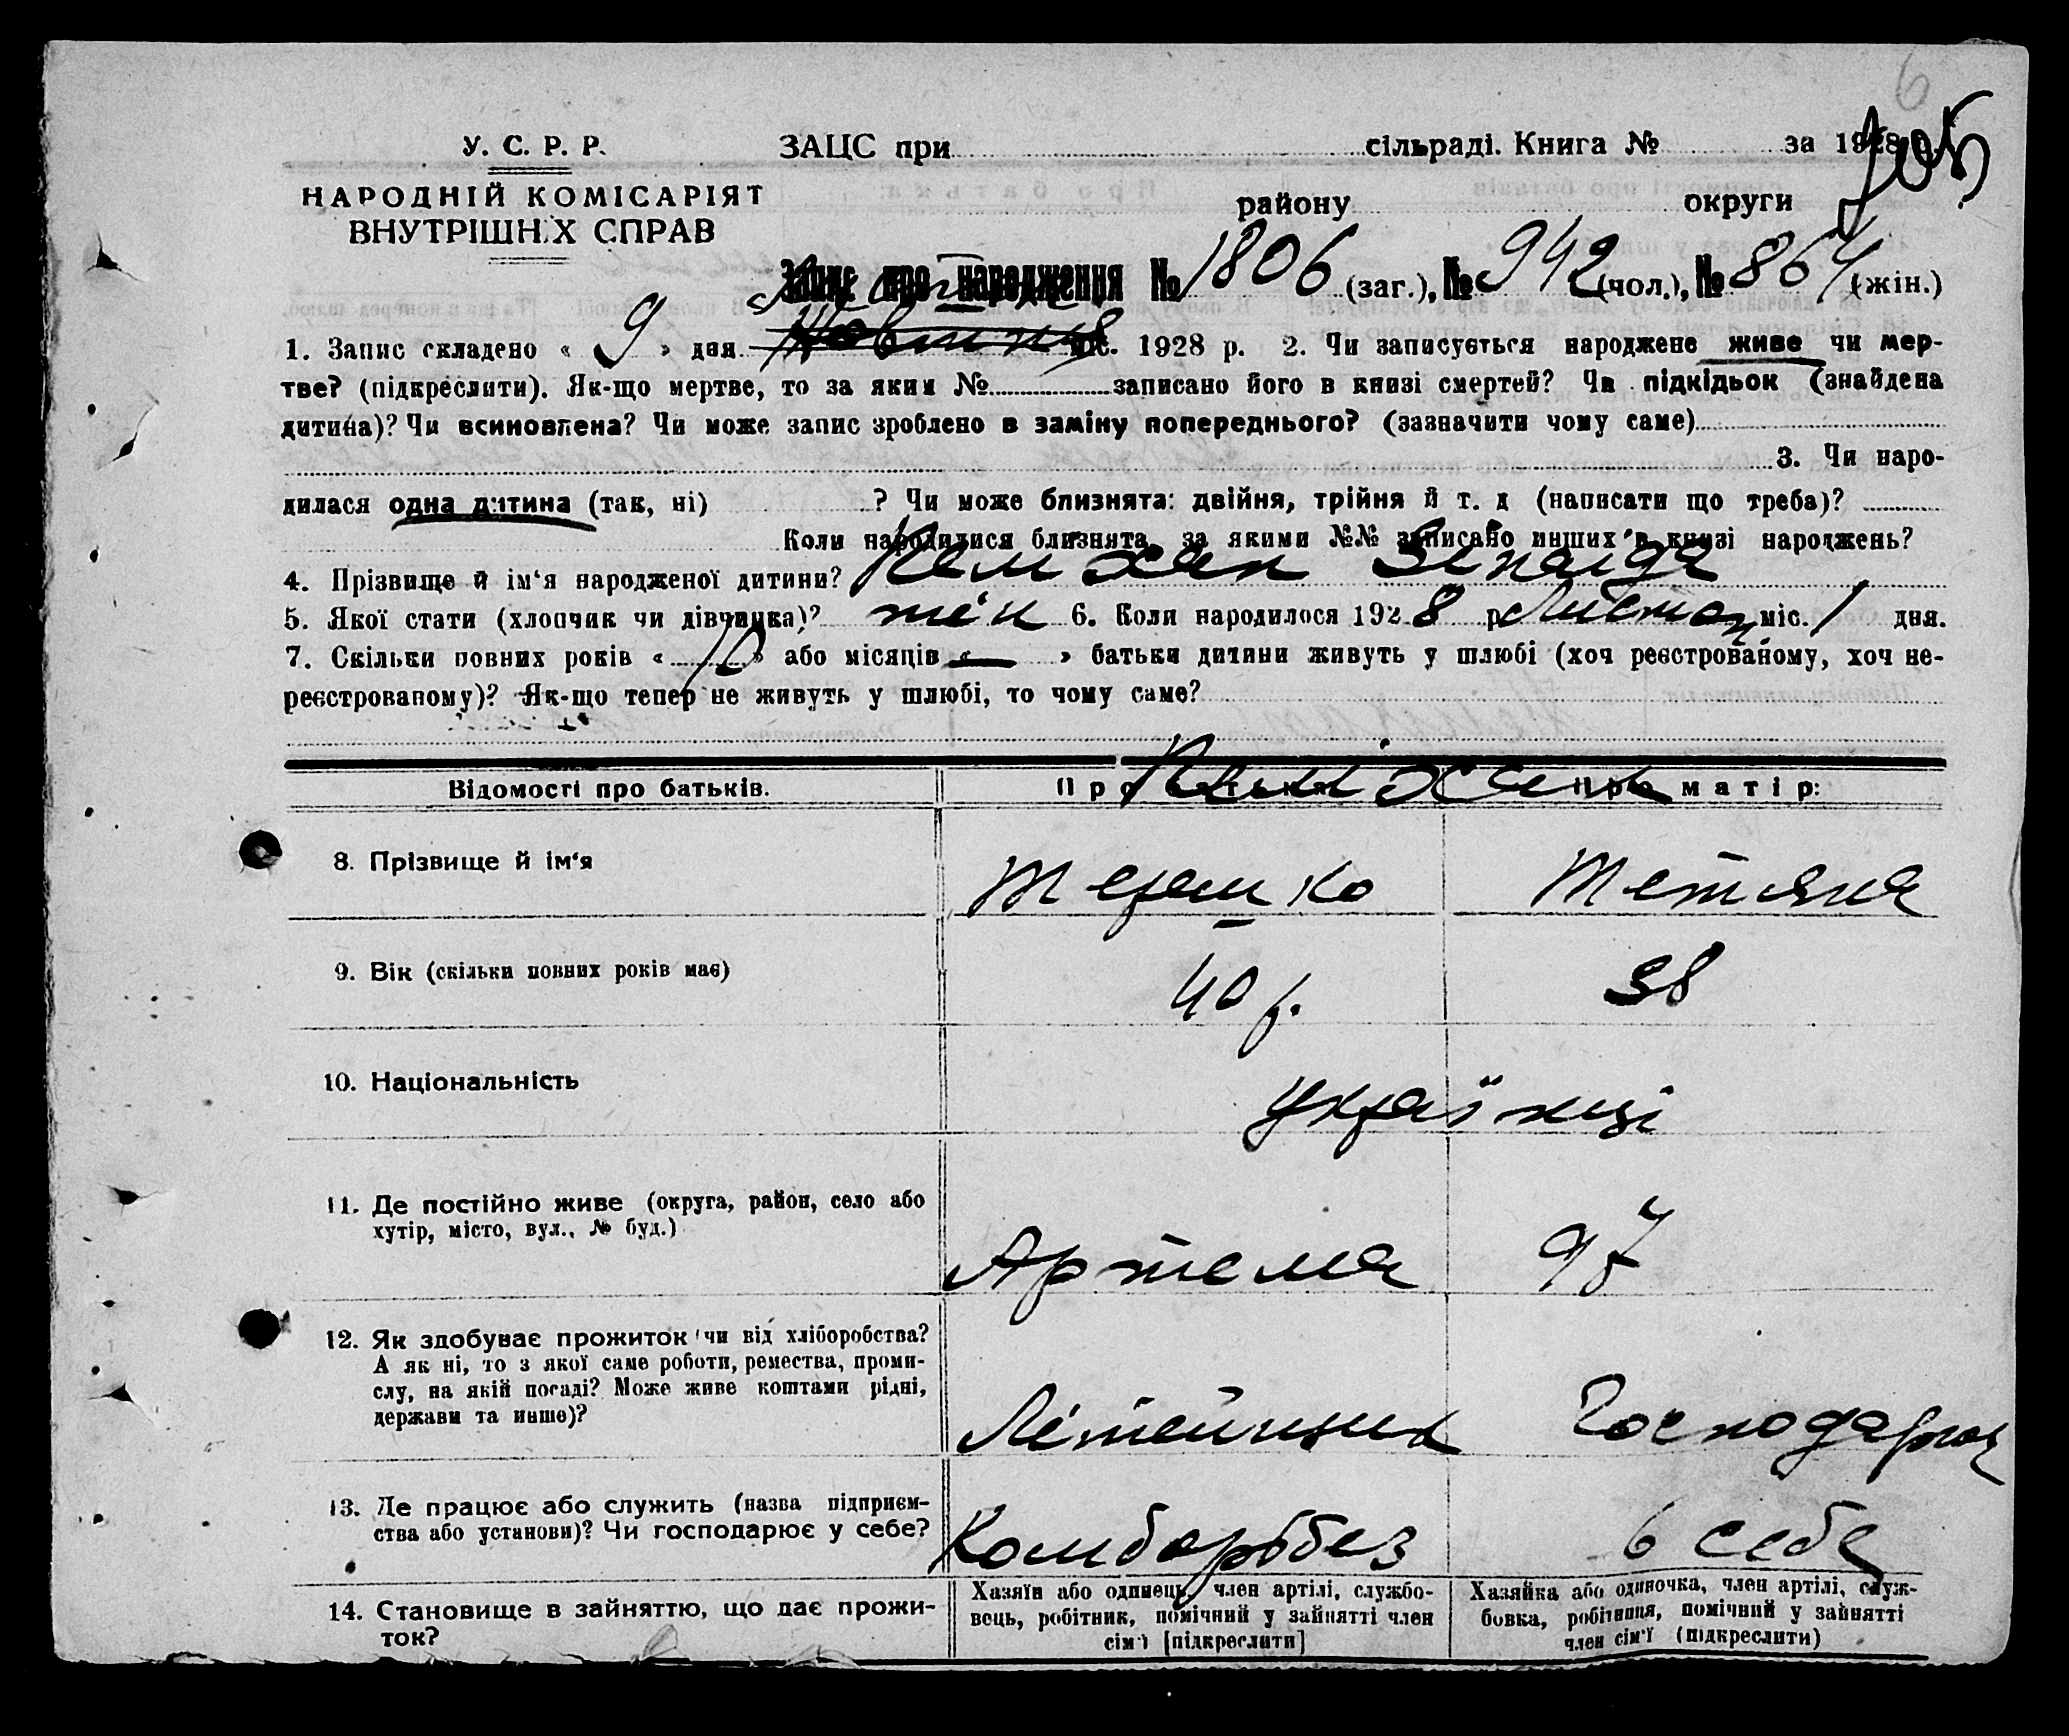 6
У. С. Р. Р. ЗАЦС при сільраді. Книга № за 1928 р.
НАРОДНІЙ КОМІСАРІЯТ району округи
ВНУТРІШНІХ СПРАВ
Запис про народження № 1806 (заг.), № 942 (чол.), № 864 (жін.)
1. Запис складено « 9 » дня міс. 1928 р. 2. Чи записується народжене живе чи мер-
тве? (підкреслити). Як-що мертве, то за яким № записано його в книзі смертей? Чи підкідьок (знайдена
дитина)? Чи всиновлена? Чи може запис зроблено в заміну попереднього? (зазначити чому саме)
3. Чи наро-
дилася одна дитина (так, ні) ? Чи може близнята: двійня, трійня й т. д (написати що треба)?
Коли народилися близнята, за якими №№ записано инших в книзі народжень?
4. Прізвище й ім'я народженої дитини? Зінаида
5. Якої стати (хлопчик чи дівчинка)? жін 6. Коли народилося 1928 р. Листоп. міс. 1 дня.
7. Скільки повних років « 10 » або місяців « — » батьки дитини живуть у шлюбі (хоч реєстрованому, хоч не-
реєстрованому)? Як-що тепер не живуть у шлюбі, то чому саме?
Відомості про батьків. Про батька: Про матір:
8. Прізвище й ім'я Терешко Тетяна
9. Вік (скільки повних років має) 40 р. 38
10. Національність Українці
11. Де постійно живе (округа, район, село або
хутір, місто, вул., № буд.) Артема 97
12. Як здобуває прожиток чи від хліборобства?
А як ні, то з якої саме роботи, ремества, проми-
слу, на якій посаді? Може живе коштами рідні,
держави та инше)? Літейщик Господарка
13. Де працює або служить (назва підприєм-
ства або установи)? Чи господарює у себе? Комборбез в себе
14. Становище в зайняттю, що дає прожи-
ток?
Хазяїн або одинець, член артілі, службо-
вець, робітник, помічний у зайнятті член
сім'ї [підкреслити]
Хазяйка або одиночка, член артілі, служ-
бовка, робітниця, помічний у зайнятті
член сім'ї (підкреслити)